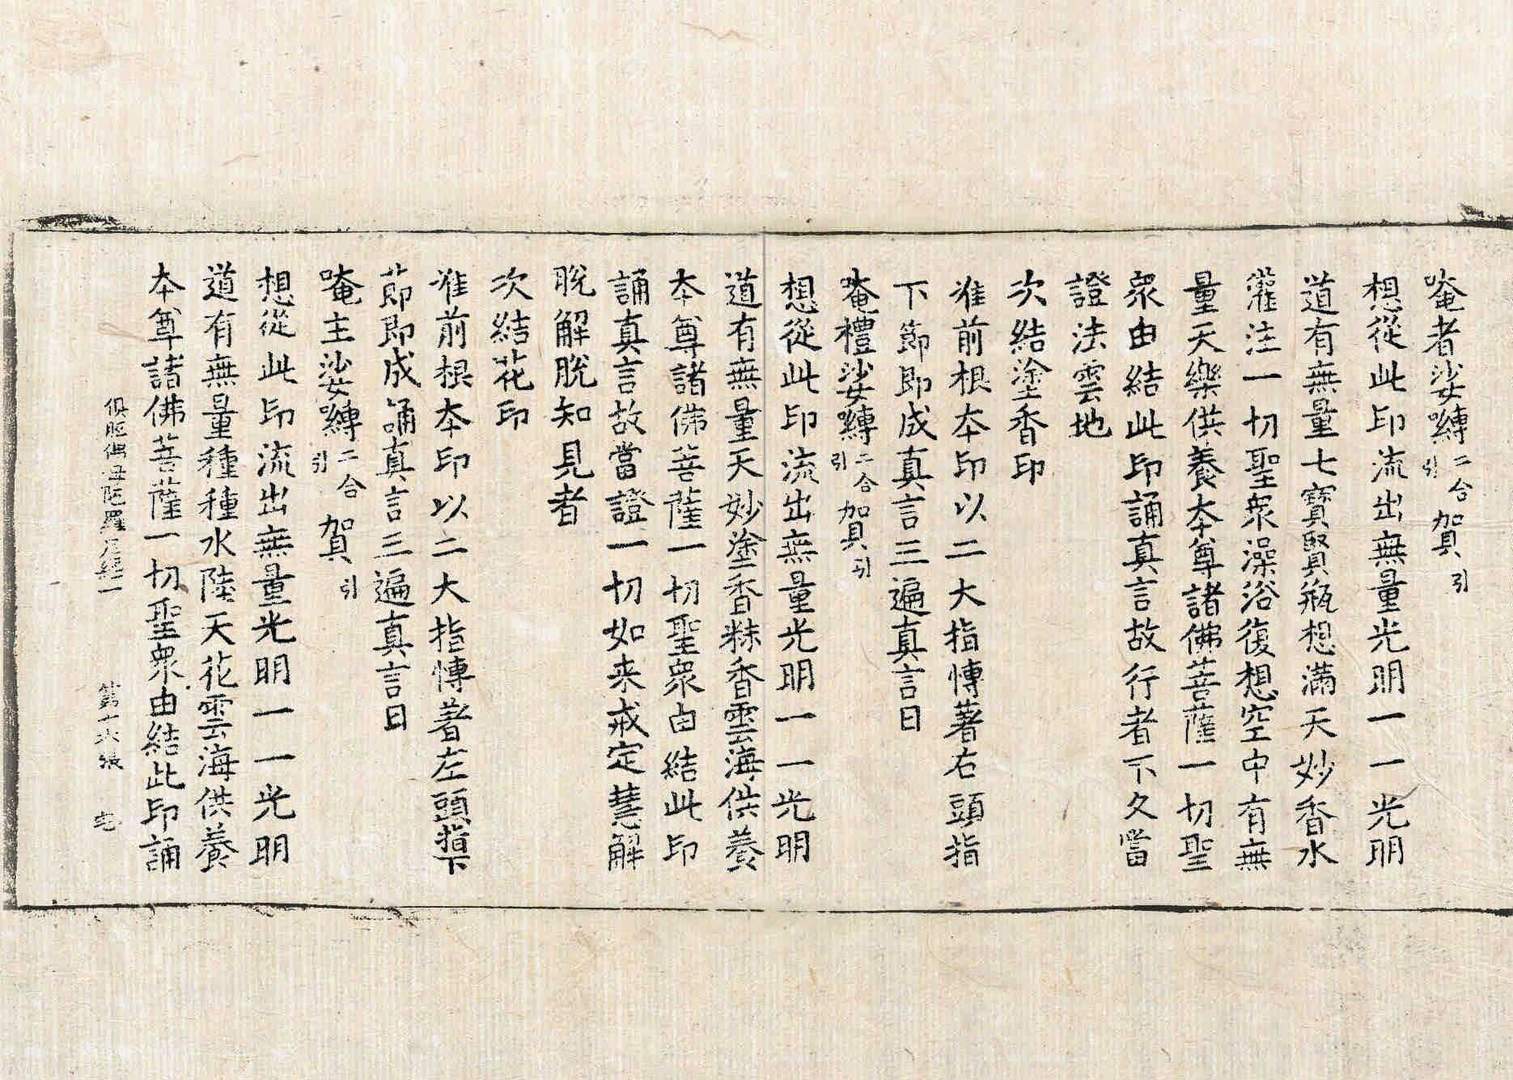 唵者娑嚩二合引賀引
想從此印流出無量光明一一光明
道有無量七寶賢瓶想滿天妙香水
灌注一切聖衆澡浴復想空中有無
量天樂供養本尊諸佛菩薩一切聖
衆由結此印誦真言故行者不久當
證法雲地
次結塗香印
准前根本印以二大指慱著右頭指
下節即成真言三遍真言曰
唵禮娑嚩二合引賀引
想從此印流出無量光明一一光明
道有無量天妙塗香粖香雲海供養
本尊諸佛菩薩一切聖衆由結此印
誦真言故當證一切如来戒定慧解
脫解脫知見者
次結花印
准前根本印以二大指慱著左頭指下
節即成誦真言三遍真言曰
唵主娑嚩二合引賀引
想從此印流出無量光明一一光明
道有無量種種水陸天花雲海供養
本尊諸佛菩薩一切聖衆由結此印誦
俱胝佛母陁羅尼經一 第十六張